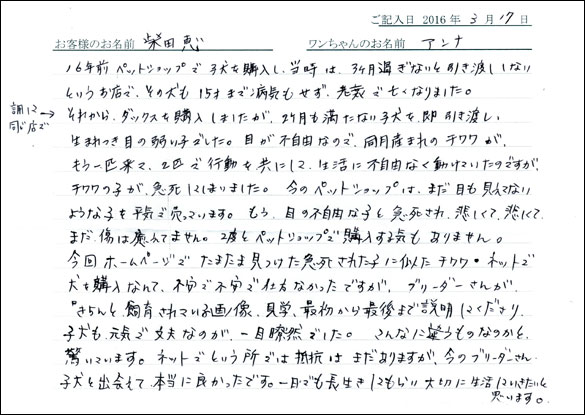 ご記入日 2016年 3月 17日
お客様のお名前 柴田恵 ワンちゃんのお名前 アンナ
16年前 ペットショップで 子犬を購入し、当時は、3ヶ月過ぎないと引き渡ししない
というお店で、その犬も 15才まで病気もせず、老衰で亡くなりました。
同じ店で
それから、ダックスを購入しましたが、2ヶ月も満たない子犬を、即引き渡し
生まれつき目の弱い子でした。目が不自由なので、同月産まれのチワワが、
もう一匹来て、2匹で行動を共にして、生活に不自由なく動けていたのですが、
チワワの子が、急死してしまいました。今のペットショップは、まだ目も見えてない
ような子を平気で売っています。もう、目の不自由な子と急死され、悲しくて、悲しくて、
まだ、傷は癒えてません。2度とペットショップで購入する気もありません。
今回ホームページでたまたま見つけた急死された子に似たチワワ・ネットで
犬を購入なんて、不安で不安で仕方なかったですが、ブリーダーさんが、
きちんと飼育されている画像、見学、最初から最後まで説明してくださり
子犬も、元気で丈夫なのが、一目瞭然でした。こんなに違うものなのかと、
驚いています。ネットでという所では抵抗はまだありますが、今のブリーダーさん
子犬と出会えて、本当に良かったです。一日でも長生きしてもらい大切に生活していきたいと
思います。